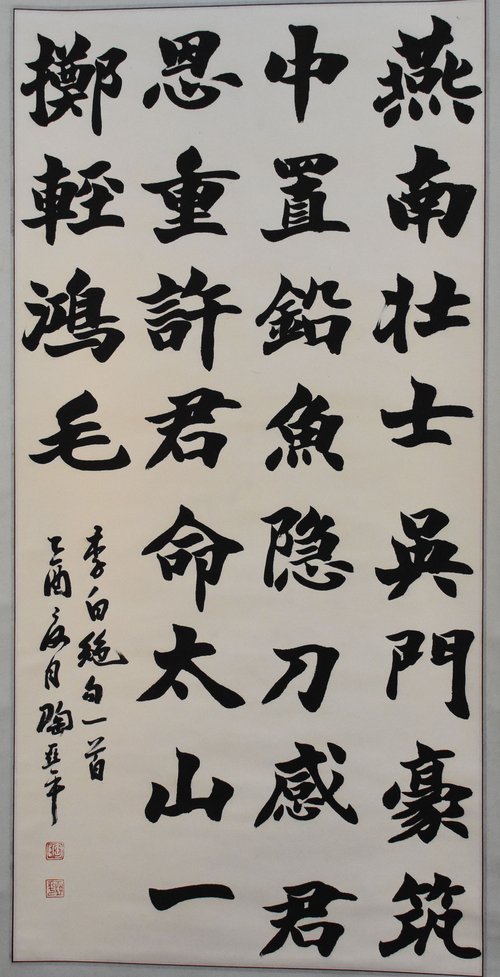 燕南壮士吳門豪筑
中置鉛魚隐刀感君
恩重許君命太山一
擲輕鴻毛
李白絶句一首
乙酉亥月陶亚平